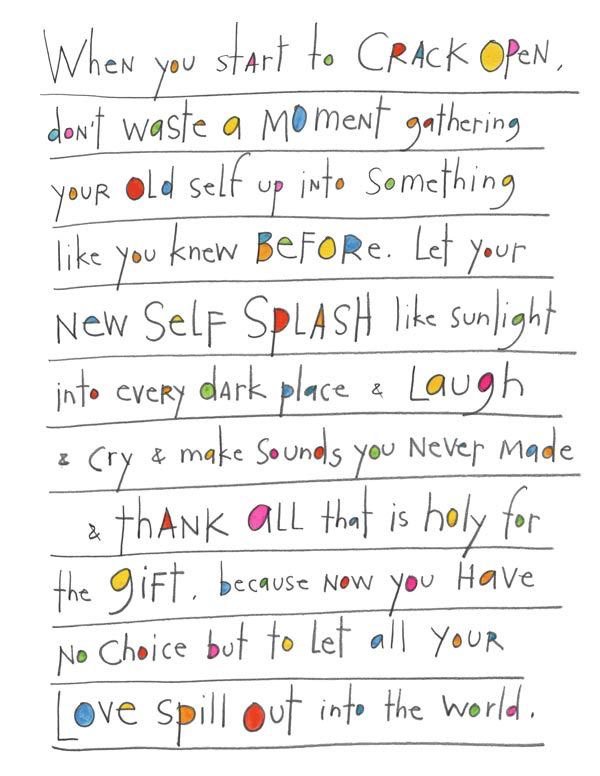 When you start to CRACK OPEN,
don't waste a MOMENT gathering
your Old self up into Something
like you knew BEFORE. Let your
New SELF SPLASH like sunlight
into every dark place & Laugh
& Cry & make Sounds you Never Made
& thANK aLL that is holy for
the giFT. because NOW you Have
No Choice but to Let all YOUR
Love Spill Out into the world.